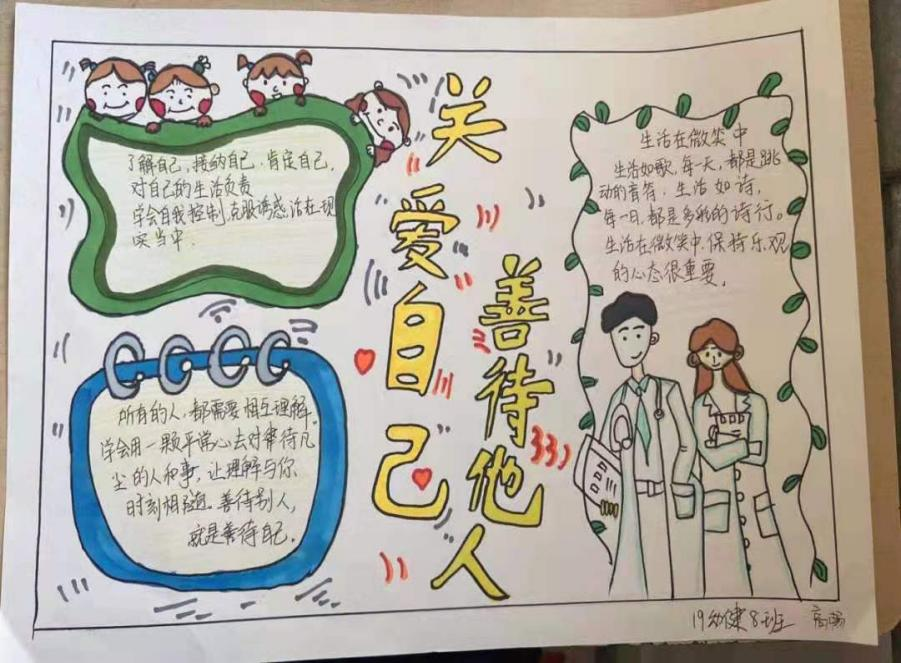 关爱自己
善待他人
了解自己,接纳自己,肯定自己,
对自己的生活负责
学会自我控制,克服诱惑,活在现
实当中.
所有的人,都需要相互理解,
学会用一颗平常心去对待凡
尘的人和事,让理解与你
时刻相随。善待别人,
就是善待自己.
生活在微笑中
生活如歌,每一天,都是跳
动的音符.生活如诗,
每一日,都是多彩的诗行。
生活在微笑中,保持乐观
的心态很重要.
19幼健8班 高畅